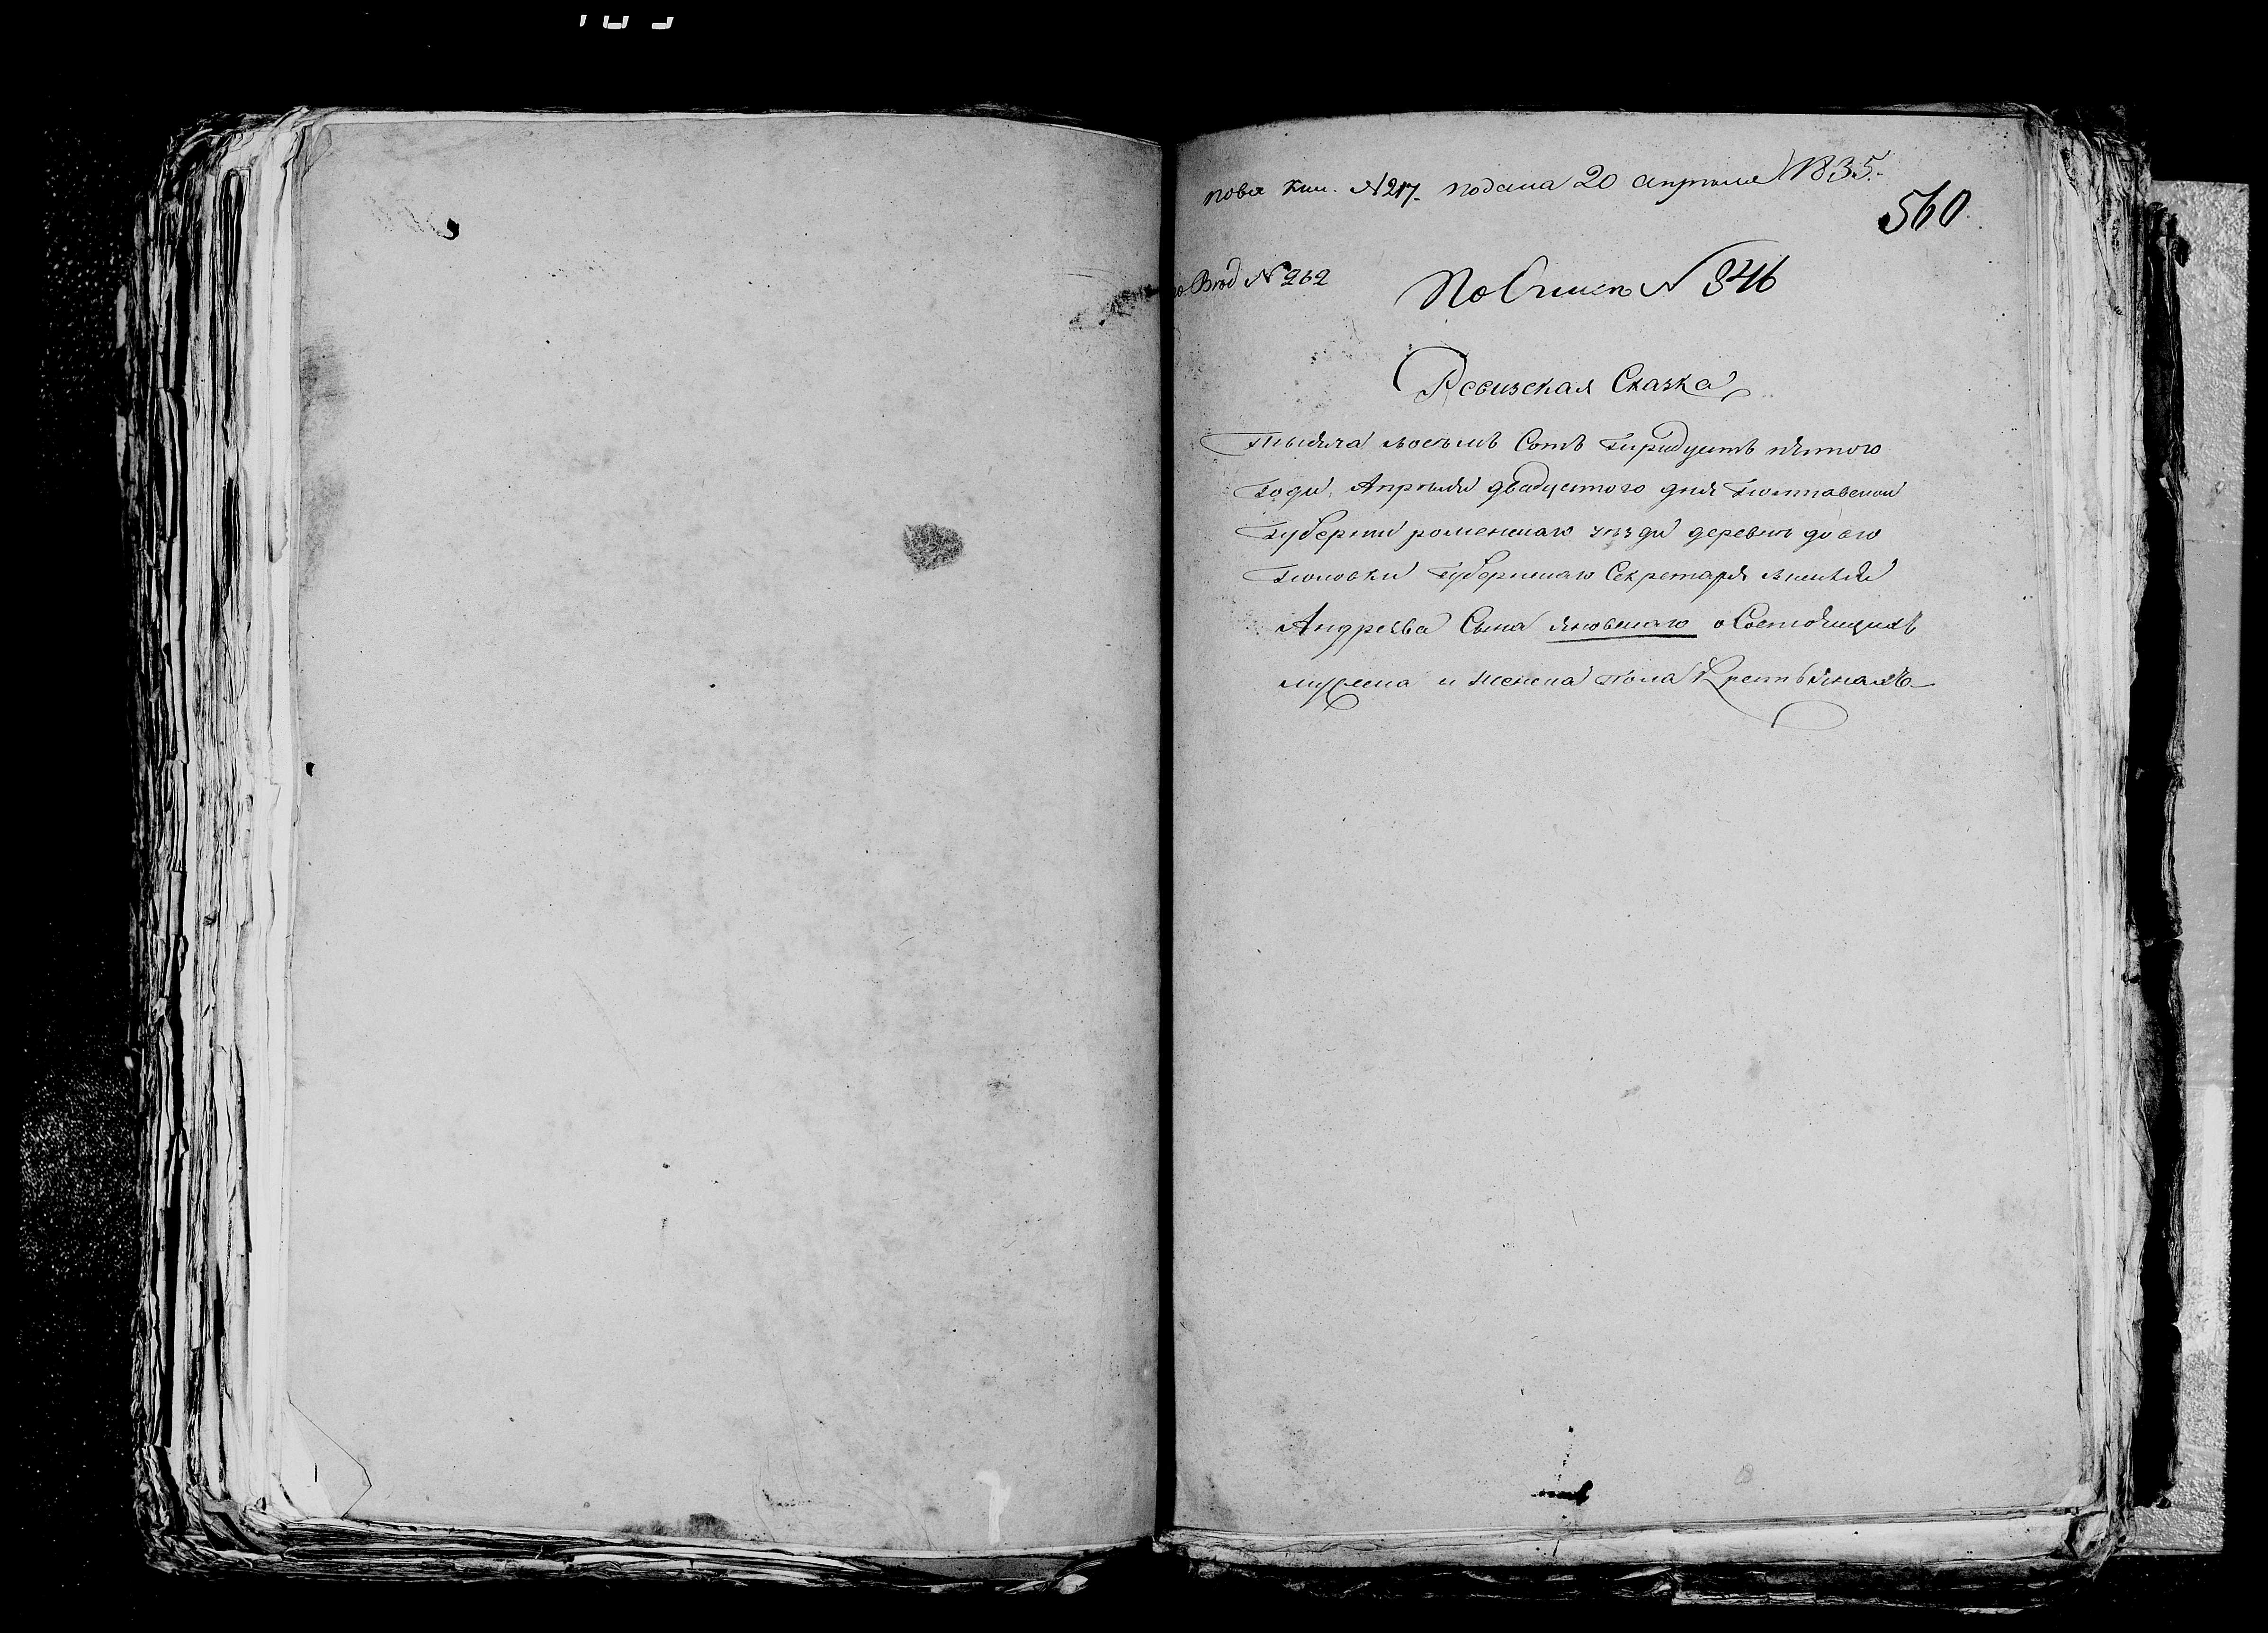 по вх кни. №217. подана 20 апреля 1835.
560.
по Вход №262
По Описи №346
Ревизская Сказка
тысяча восемь Сотъ тридцать пятого
года, Апреля двадцатого дня полтавской
Губернии роменскаго уезда деревни
Губернскаго Секретаря
Андреева Сына яновскаго о Состоящихъ
мужеска и женска пола Крестьянахъ